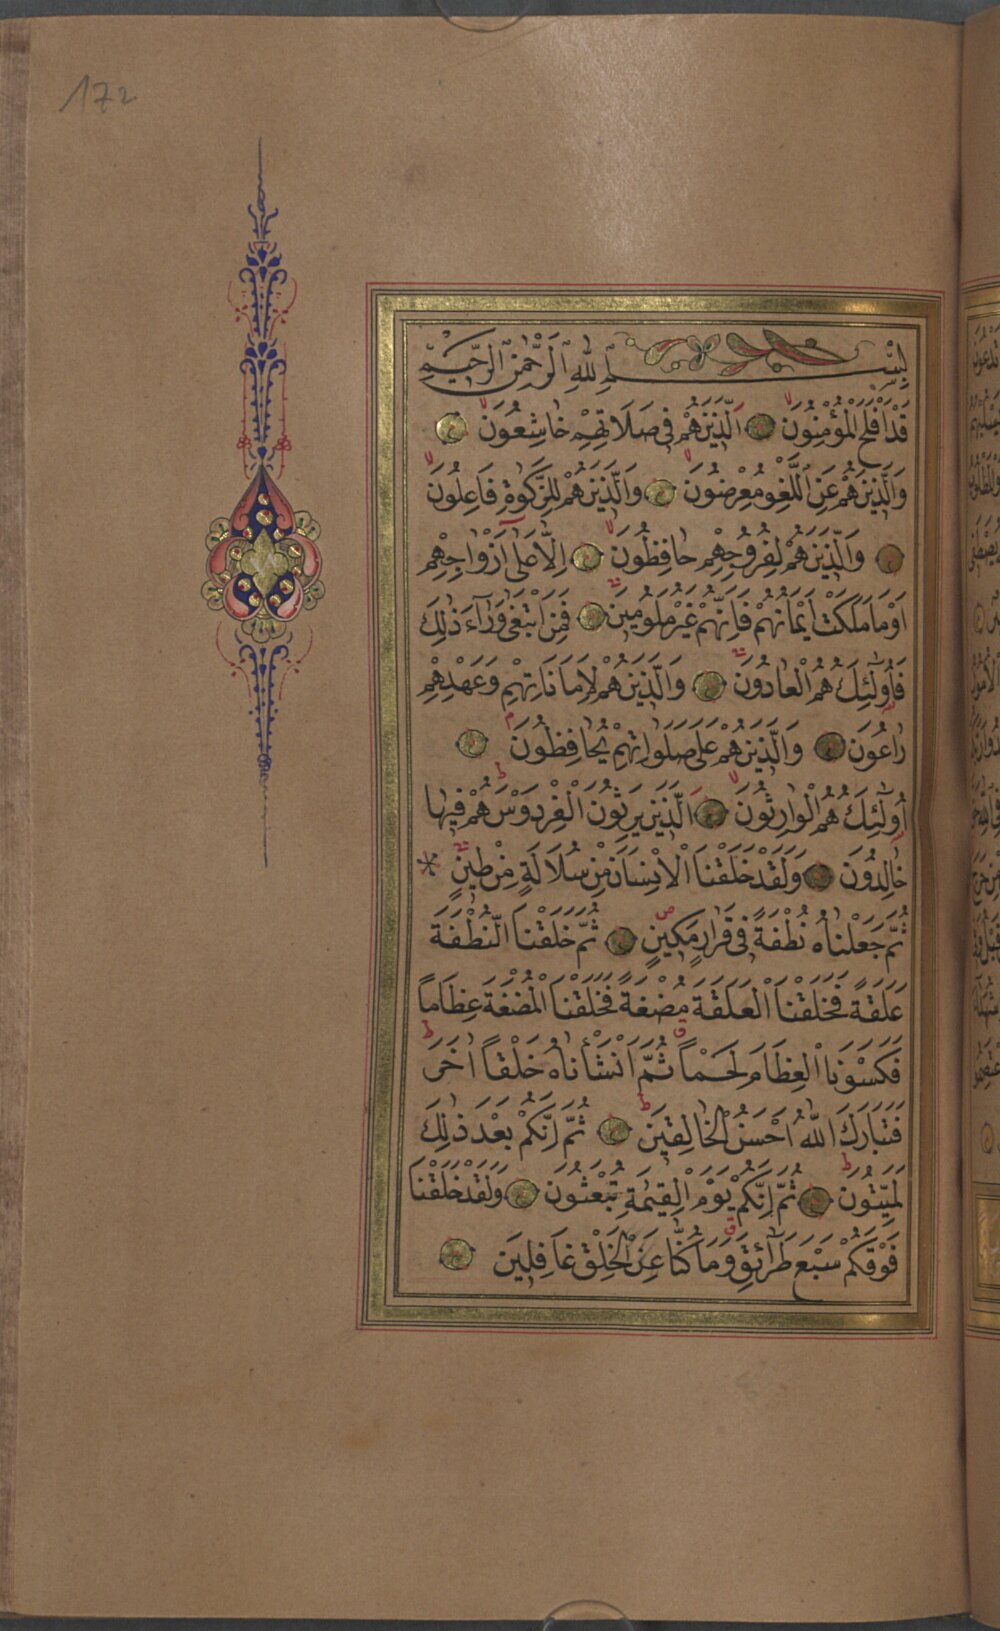 172
بِسْمِ اللهِ الرَّحْمٰنِ الرَّحِيمِ
قَدْ اَفْلَحَ الْمُؤْمِنُونَ اَلَّذِينَ هُمْ فِى صَلَاتِهِمْ خَاشِعُونَ
وَالَّذِينَ هُمْ عَنِ اللَّغْوِ مُعْرِضُونَ وَالَّذِينَ هُمْ لِلزَّكٰوةِ فَاعِلُونَ
وَالَّذِينَ هُمْ لِفُرُوجِهِمْ حَافِظُونَ اِلَّا عَلٰى اَزْوَاجِهِمْ
اَوْ مَا مَلَكَتْ اَيْمَانُهُمْ فَاِنَّهُمْ غَيْرُ مَلُومِينَ فَمَنِ ابْتَغٰى وَرَاءَ ذٰلِكَ
فَاُولٰئِكَ هُمُ الْعَادُونَ وَالَّذِينَ هُمْ لِاَمَانَاتِهِمْ وَعَهْدِهِمْ
رَاعُونَ وَالَّذِينَ هُمْ عَلٰى صَلَوَاتِهِمْ يُحَافِظُونَ
اُولٰئِكَ هُمُ الْوَارِثُونَ اَلَّذِينَ يَرِثُونَ الْفِرْدَوْسَ هُمْ فِيهَا
خَالِدُونَ وَلَقَدْ خَلَقْنَا الْاِنْسَانَ مِنْ سُلَالَةٍ مِنْ طِينٍ
ثُمَّ جَعَلْنَاهُ نُطْفَةً فِى قَرَارٍ مَكِينٍ ثُمَّ خَلَقْنَا النُّطْفَةَ
عَلَقَةً فَخَلَقْنَا الْعَلَقَةَ مُضْغَةً فَخَلَقْنَا الْمُضْغَةَ عِظَاماً
فَكَسَوْنَا الْعِظَامَ لَحْماً ثُمَّ اَنْشَأْنَاهُ خَلْقاً اٰخَرَ
فَتَبَارَكَ اللهُ اَحْسَنُ الْخَالِقِينَ ثُمَّ اِنَّكُمْ بَعْدَ ذٰلِكَ
لَمَيِّتُونَ ثُمَّ اِنَّكُمْ يَوْمَ الْقِيٰمَةِ تُبْعَثُونَ وَلَقَدْ خَلَقْنَا
فَوْقَكُمْ سَبْعَ طَرَائِقَ وَمَا كُنَّا عَنِ الْخَلْقِ غَافِلِينَ